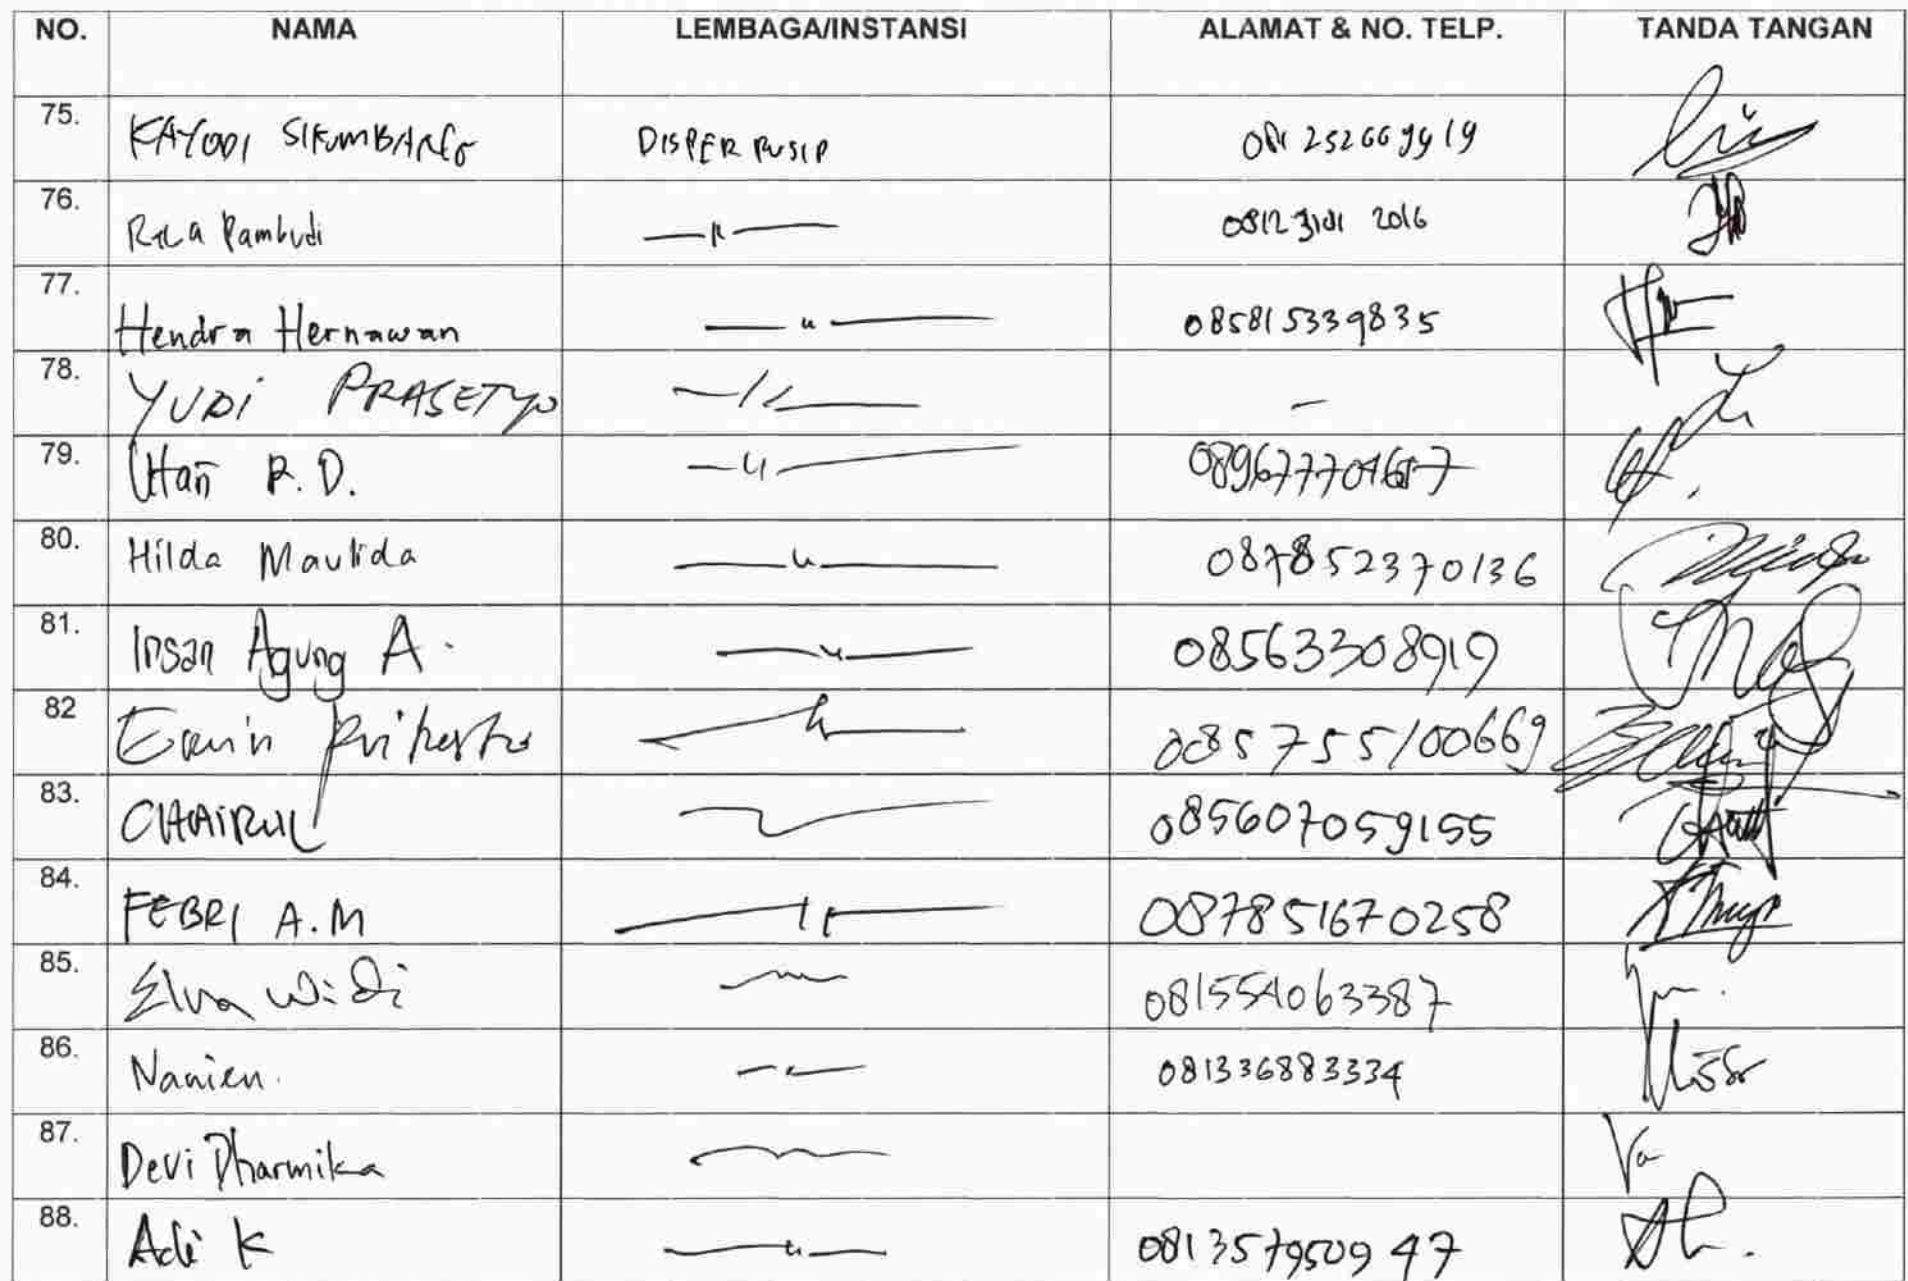 NO. NAMA LEMBAGA/INSTANSI ALAMAT & NO. TELP. TANDA TANGAN
75. KAYODI SIKUMBANG DISPERPUSIP
76. Pambudi 2016
77. Hendra Hernawan — " — 085815339835
78. YUDI PRASETYO — " — -
79. R.D. — " —
80. Hilda Maulida — " — 087852370136
81. Insan Agung A. — " — 08563308919
82 — " — 085755100669
83. CHAIRUL 085607059155
84. FEBRI A.M — " — 087851670258
85. Elva Widi 081554063387
86. 081336883334
87. Devi Dharmika
88. Adi K — " — 081357950947